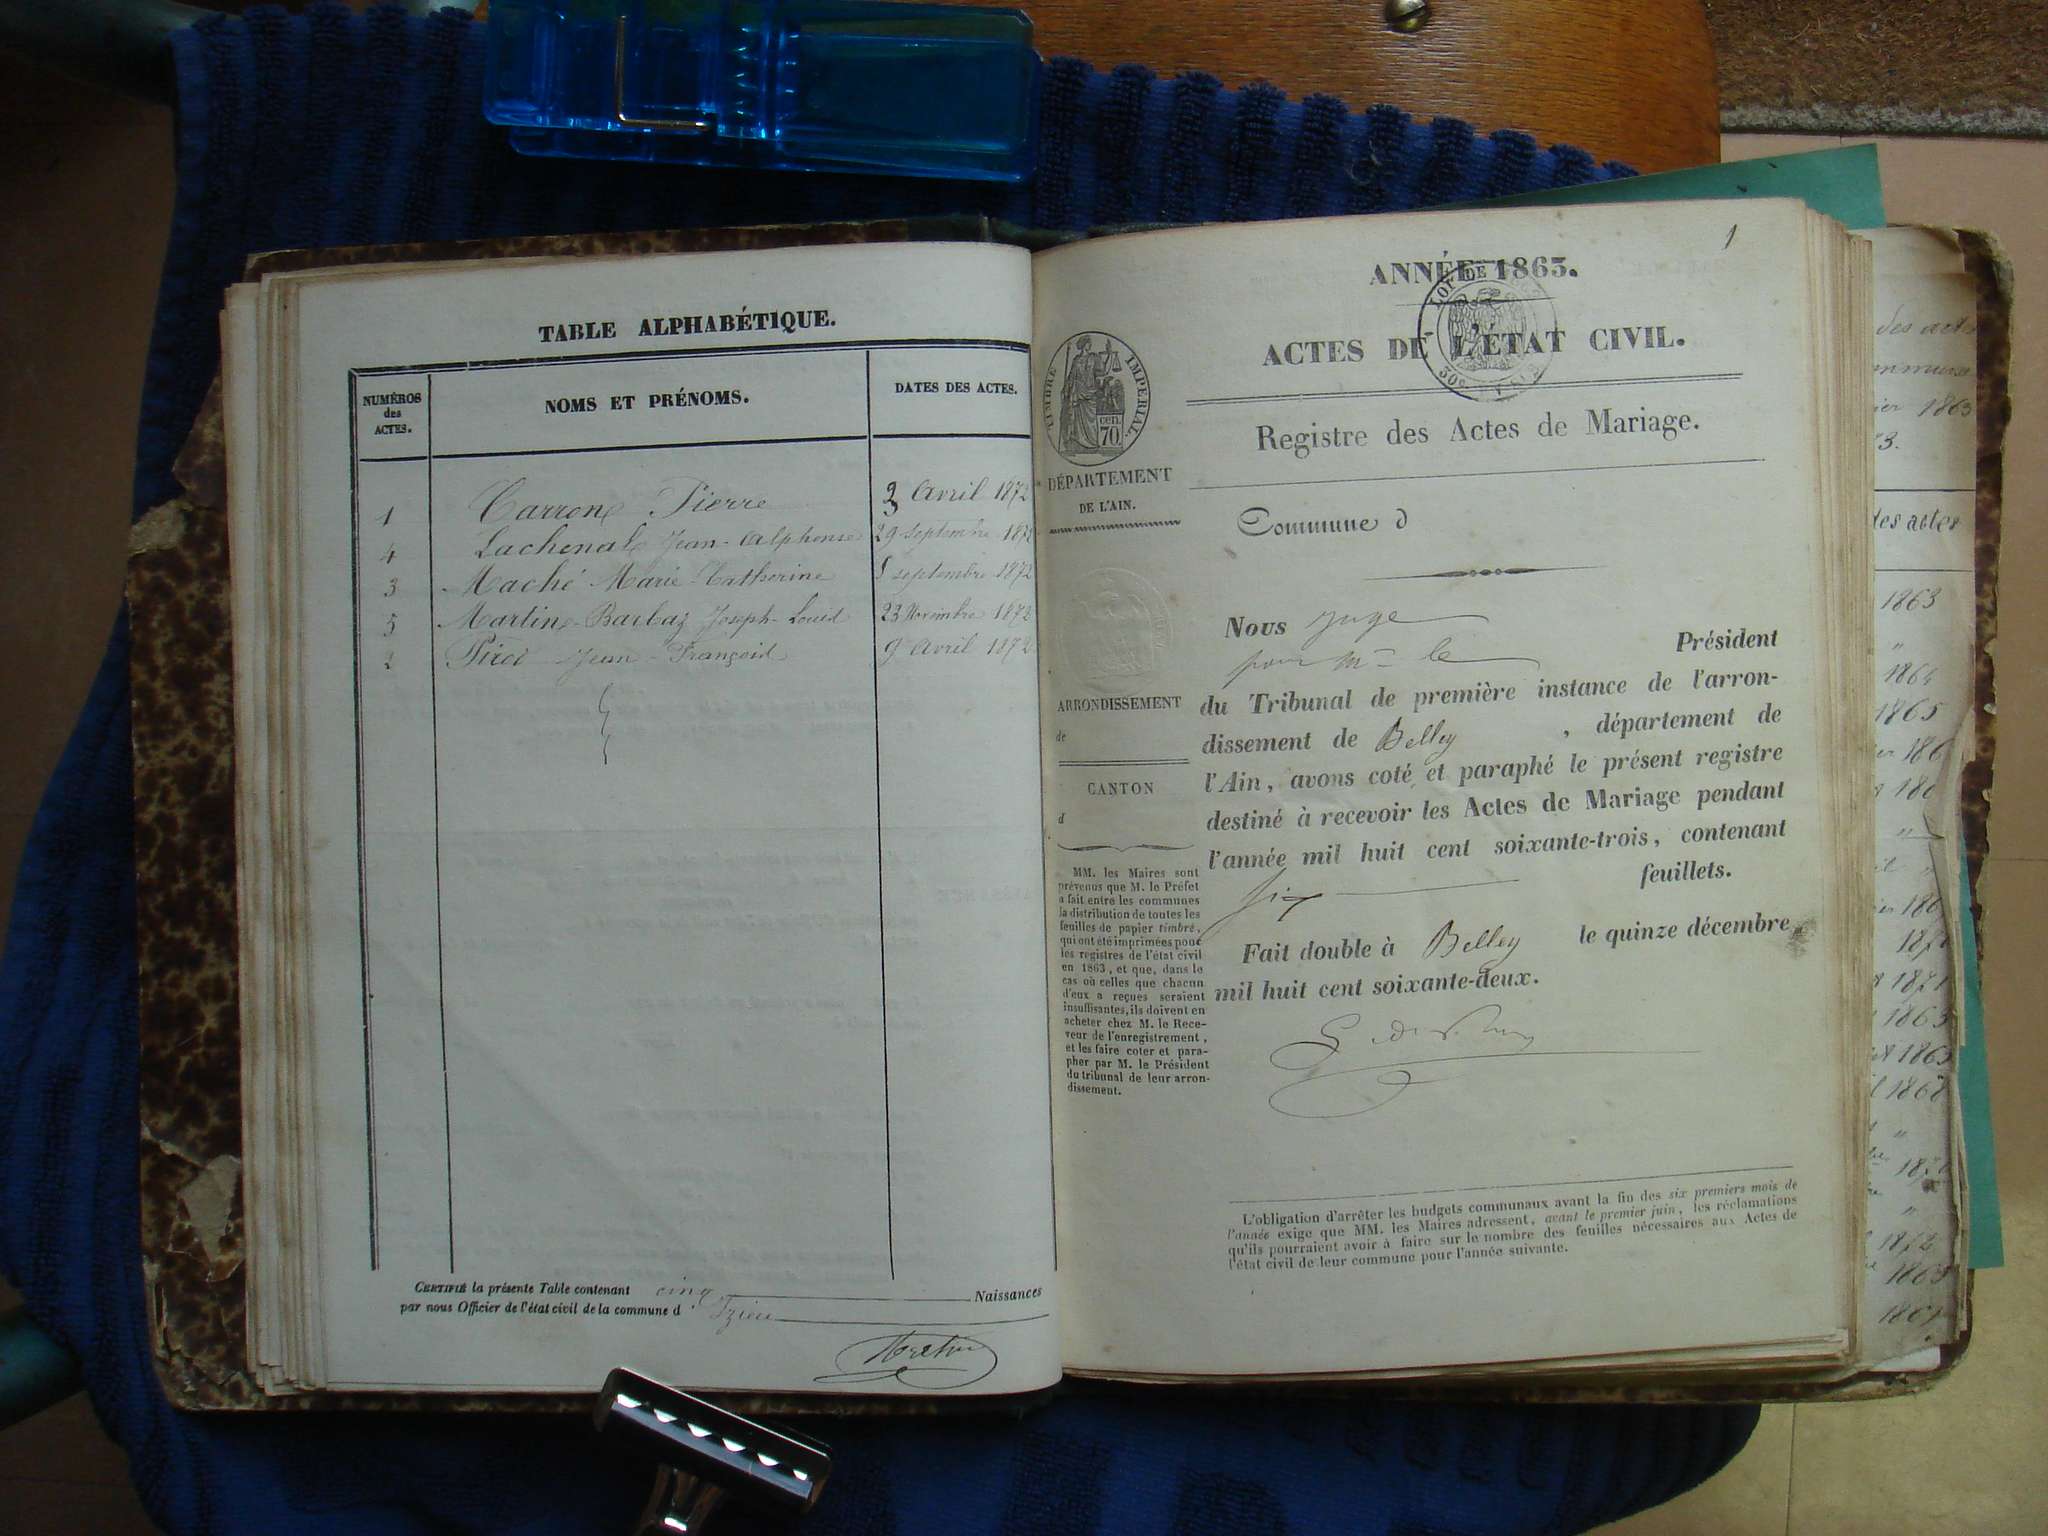 TABLE ALPHABÉTIQUE.
NUMÉROS
des
ACTES.
NOMS ET PRÉNOMS.
DATES DES ACTES.
1 Carrone Pierre 3 Avril 1872
4 Lachenal Jean-Alphonse 29 septembre 1872
3 Maché Marie-Catherine 5 septembre 1872
5 Martine-Barbaz Joseph-Louis 23 Novembre 1872
2 Piroi Jean-François 9 Avril 1872
CERTIFIÉ la présente Table contenant cinq Naissances
par nous Officier de l'état civil de la commune d'Izieu
1
ANNÉE 1863.
ACTES DE L'ÉTAT CIVIL.
Registre des Actes de Mariage.
TIMBRE IMPERIAL.
cen.
70
DÉPARTEMENT
DE L'AIN.
ARRONDISSEMENT
de
CANTON
d
MM. les Maires sont
prévenus que M. le Préfet
a fait entre les communes
la distribution de toutes les
feuilles de papier timbré,
qui ont été imprimées pour
les registres de l'état civil
en 1863, et que, dans le
cas où celles que chacun
d'eux a reçues seraient
insuffisantes, ils doivent en
acheter chez M. le Rece-
veur de l'enregistrement,
et les faire coter et para-
pher par M. le Président
du tribunal de leur arron-
dissement.
Commune d
Nous juge
pour Mr le Président
du Tribunal de première instance de l'arron-
dissement de Belley, département de
l'Ain, avons coté et paraphé le présent registre
destiné à recevoir les Actes de Mariage pendant
l'année mil huit cent soixante-trois, contenant
six feuillets.
Fait double à Belley le quinze décembre
mil huit cent soixante-deux.
L'obligation d'arrêter les budgets communaux avant la fin des six premiers mois de
l'année exige que MM. les Maires adressent, avant le premier juin, les réclamations
qu'ils pourraient avoir à faire sur le nombre des feuilles nécessaires aux Actes de
l'état civil de leur commune pour l'année suivante.
des act
1863
des actes
1863
1864
1865
1871
1863
1863
1868
1872
1863